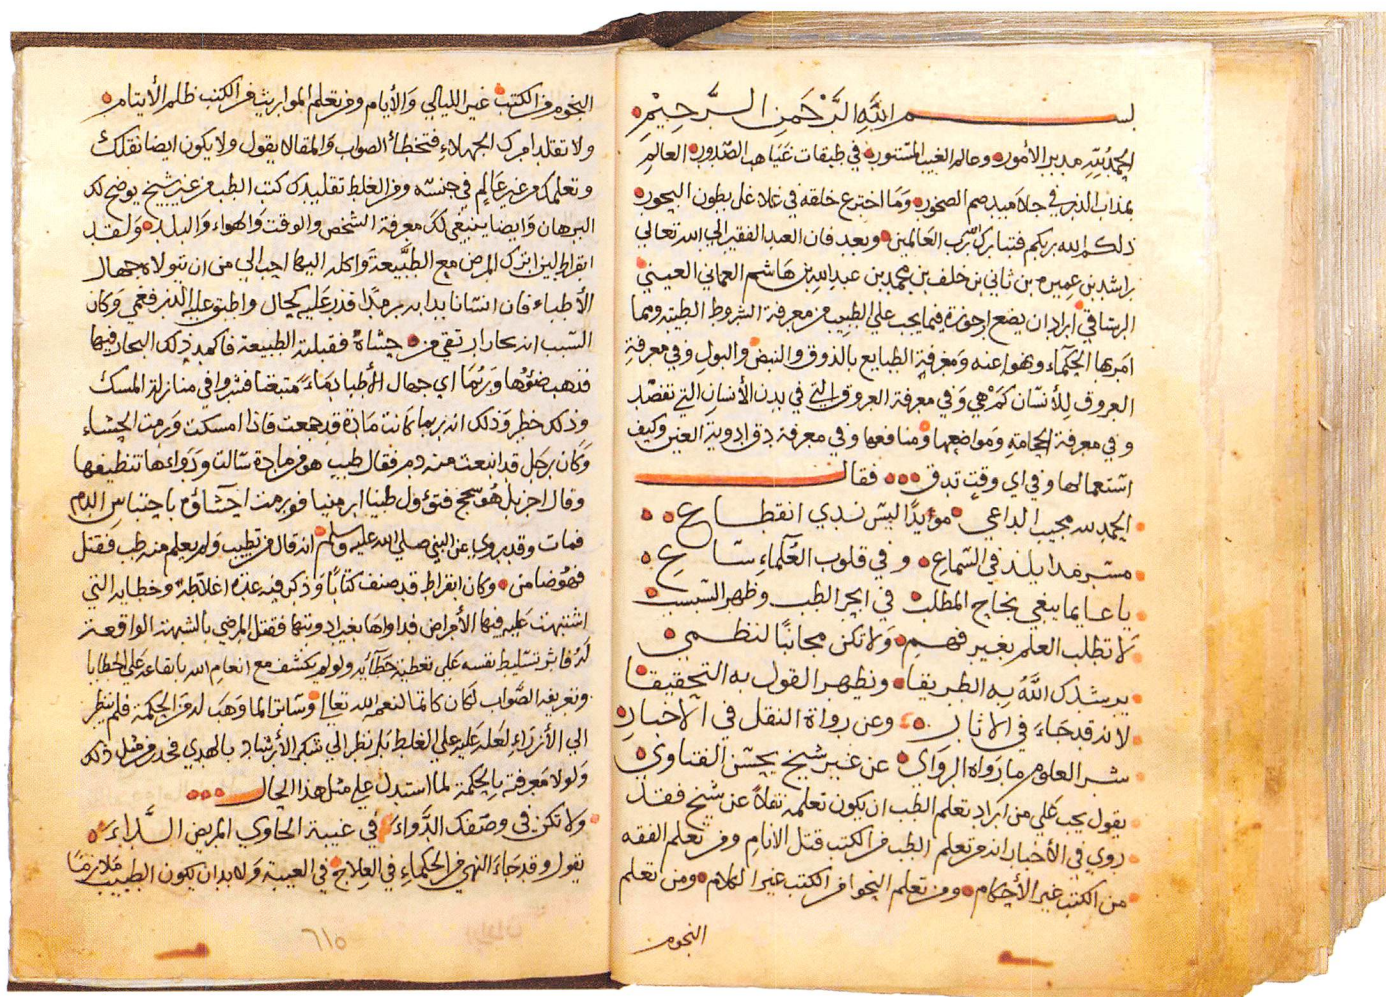 بسم الله الرحمن الرحيم
الحمد لله مدبر الأمور وعالم الغيب المستور في طبقات غياهب الصدور العالم
بمذاب الذر في جلاميد صم الصخور وما اخترع خلقه في بطون البحور
ذلكم الله ربكم فتبارك الله رب العالمين وبعد فان العبد الفقير الي الله تعالي
راشد بن عميره بن ثاني بن خلف بن محمد بن عبد الله بن هاشم العماني العيني
الرستاقي اراد ان يضع ارجوزة فيما يجب علي الطبيب من معرفة الشروط الطبيه ومما
امر بها الحكمآء ونهوا عنه ومعرفة الطبايع بالذوق والنبض والبول وفي معرفة
العروق للأنسان كم هي وفي معرفة العروق التي في بدن الأنسان التي تفصد
وفي معرفة الحجامة ومواضعها ومنافعها وفي معرفة دق ادوية العين وكيف
استعمالها وفي اي وقت تدق فقال
الحمد لله مجيب الداعي مؤيدا ليس بذي انقطاع
سرمدا يلذ في السماع وفي قلوب العلماء ساع
يا عايما يبغي نجاح المطلب في ابحر الطب وظهر السبسب
لا تطلب العلم بغير فهم ولا تكن مجانبا لنظمي
يرشدك الله به الطريقا ونظهر القول به التحقيقا
لانه قد جاء في الاثار وعن رواة النقل في الاخبار
شر العلوم ما رواه الراوي عن غير شيخ يحسن الفتاوي
يقول يجب علي من اراد تعلم الطب ان يكون تعلمه نقلا عن شيخ فقد
روي في الأخبار انه من تعلم الطب من الكتب قتل الانام ومن تعلم الفقه
من الكتب غير الأحكام ومن تعلم النحو من الكتب غير الكلام ومن تعلم
النجوم
النجوم من الكتب غير الليالي والأيام ومن تعلم المواريث من الكتب ظلم الأيتام
ولا تقلد امرك الجهلاء فتخطأ الصواب والمقالا يقول ولا يكون ايضا نقلك
وتعلمك من غير عالم في جنسه ومن الغلط تقليدك كتب الطب من غير شيخ يوضح لك
البرهان وايضا ينبغي لك معرفة الشخص والوقت والهواء والبلد ولقد
ابقراط لين اترك المرض مع الطبيعة واكله اليها احب الي من ان يتولاه جهال
الأطباء فان انسانا بدا به رمد فذر عليه كحال واطبق عليه الذر فعمي وكان
السبب انه بخار ارتقي من حشاه فقبلته الطبيعة فاكمد ذلك البخار فيها
فذهب ضوها وربما اي جهال الأطبا
وذلك خطر وذلك انه ربما كانت مادة قد همعت فاذا امسكت ورمت الحشاء
وكان برجل قد انبعث منه دم فقال طبيب هو من مادة سالت ودواءها تنظيفها
وقال اخر بل هو سحج فتؤول طينا ارمنيا فورمت احشاؤه باحتباس الدم
فمات وقد يروي عن النبي صلي الله عليه وسلم انه قال من تطبب ولم يعلم منه طب فقتل
فهو ضامن وكان ابقراط قد صنف كتابا وذكر فيه عدة اغلاطه وخطايه التي
اشتبهت عليه فيها الأمراض فداواها بغير ادويتها فقتل المرضي بالشبهة الواقعة
له فاثر تسليط نفسه علي تعطية خطآئه ولو لم يكشف مع انعام الله بابقاعه علي الخطايا
وتعريفه الصواب لكان كاتما لنعم الله تعالي وساترا لما وهب له من الحكمة فلم ينظر
الي الأزراء لعله عليه علي الغلط بل نظر الي شكر الأرشاد بالهدي
ولولا معرفته بالحكمة لما استدل علي مثل هذا الحال
ولا تكن في وصفك الدواء في غيبة الحاوي المريض الداء
يقول وقد جاء النهي من الحكماء في العلاج في الغيبة ولا بد ان يكون الطبيب ملازما
٦١٥